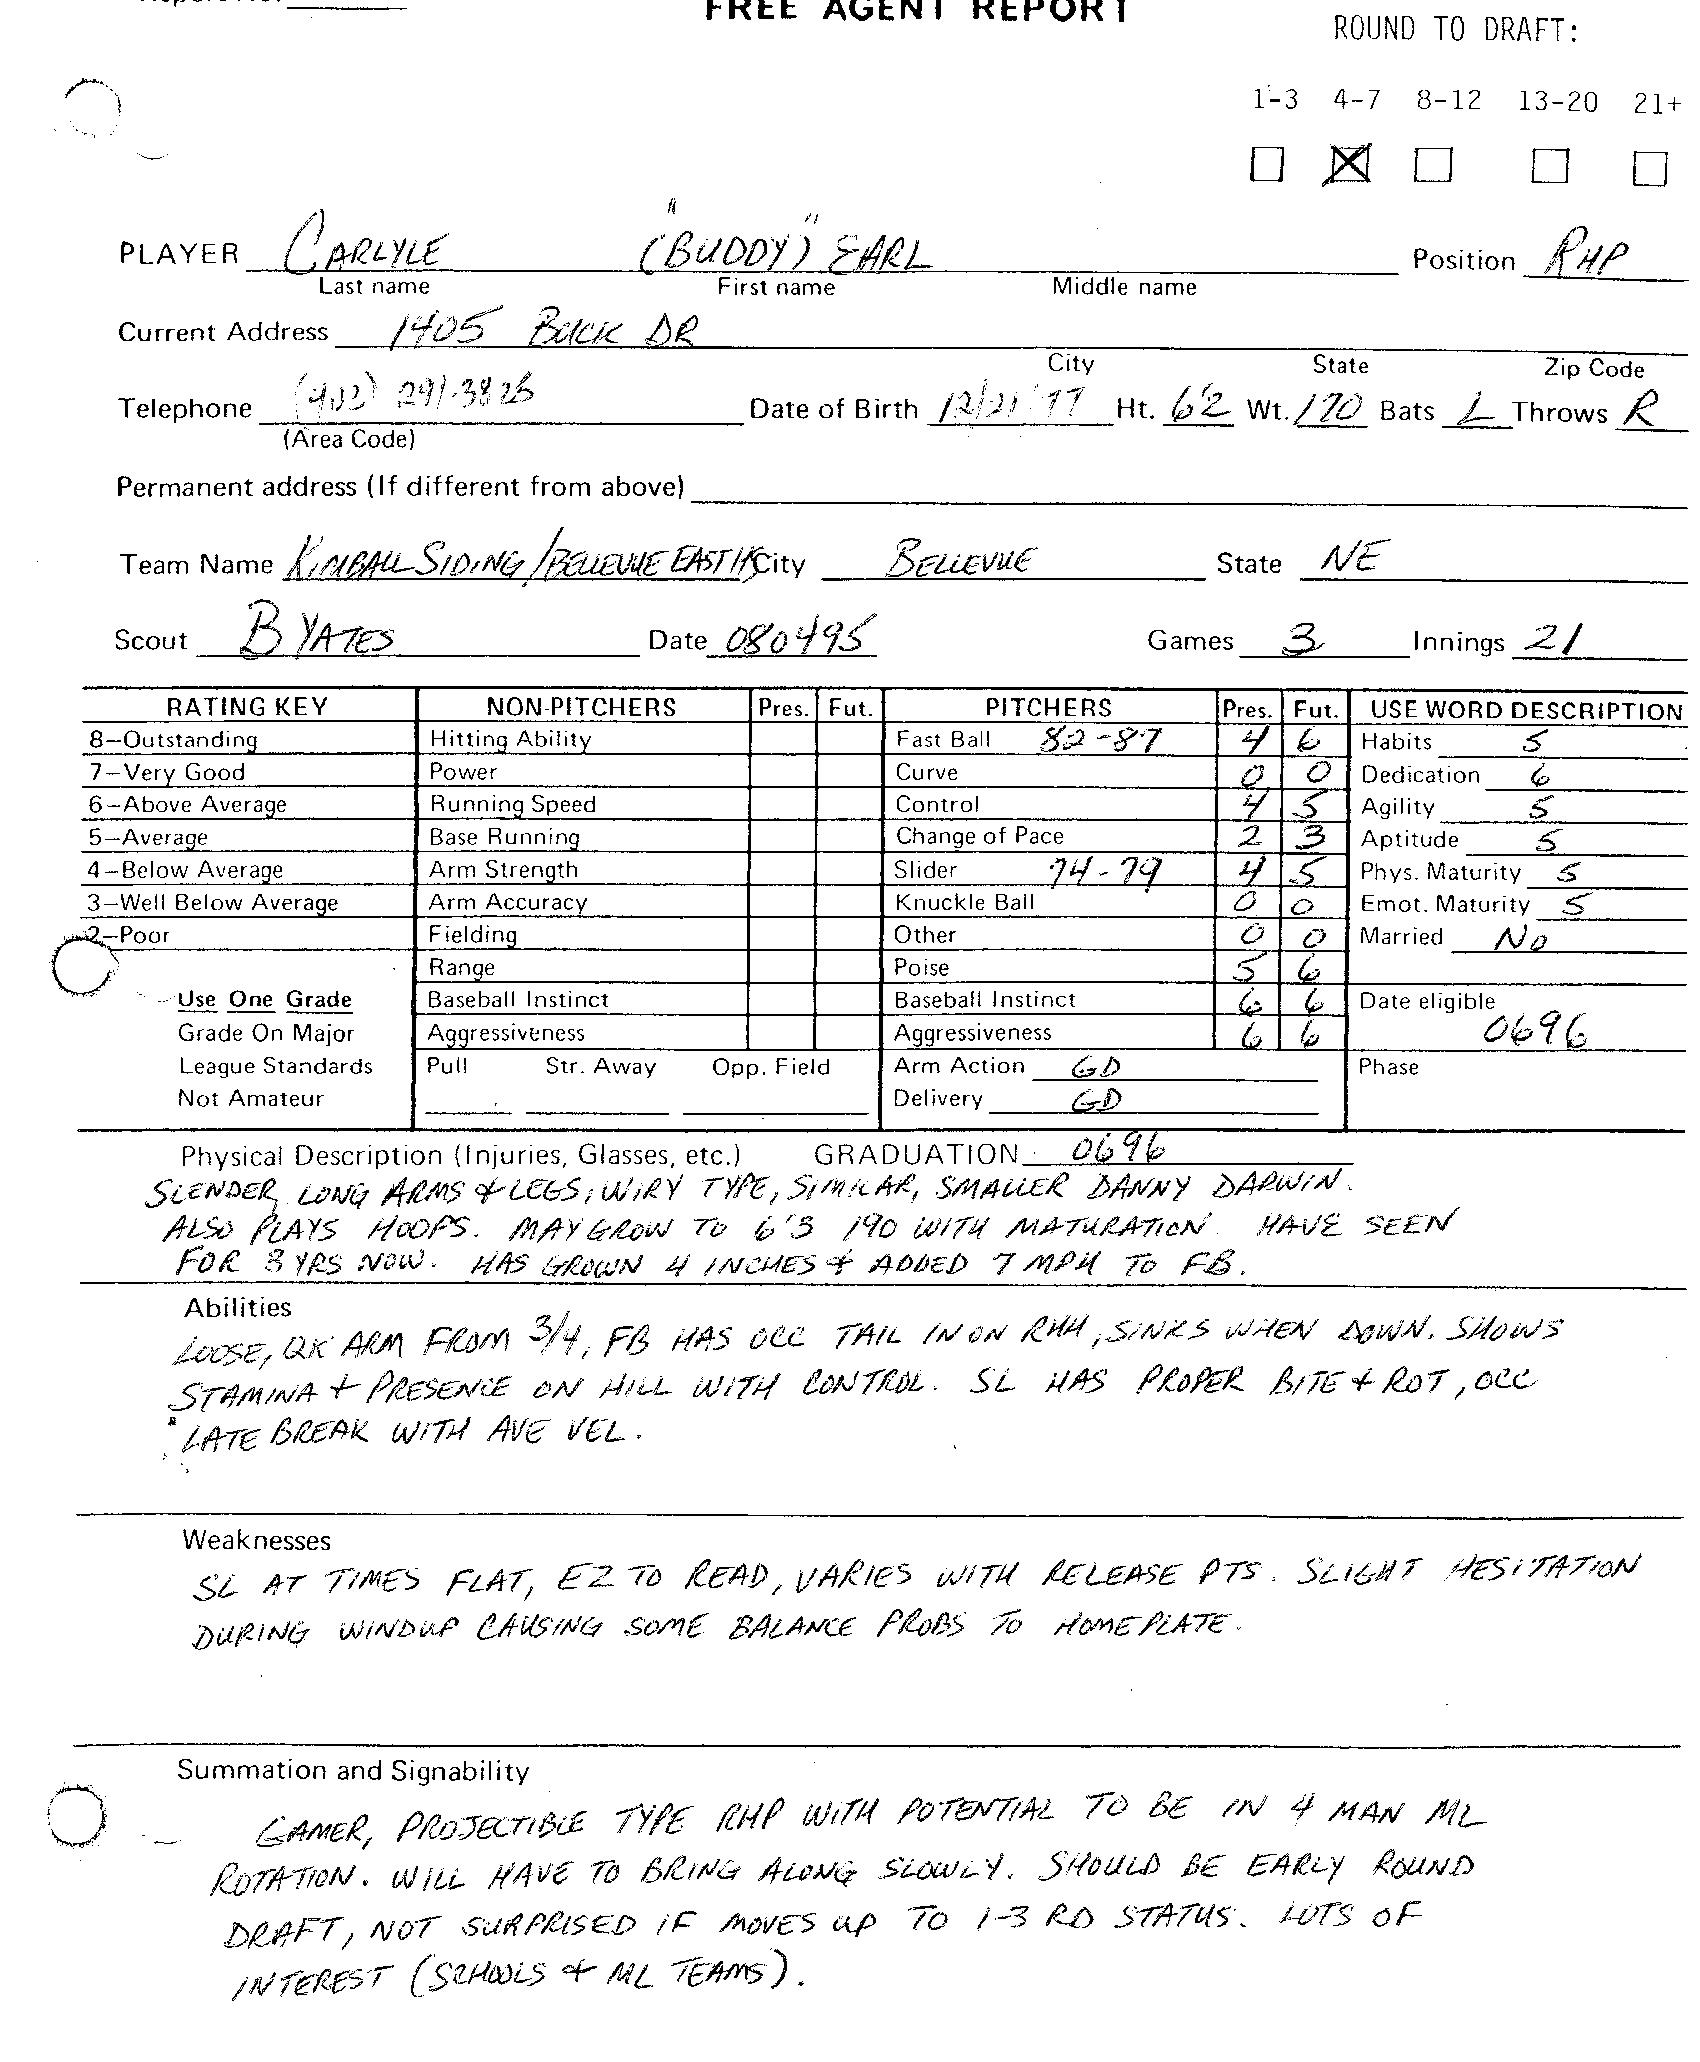 FREE AGENT REPORT
ROUND TO DRAFT:
1-3 4-7 8-12 13-20 21+
PLAYER CARLYLE ("BUDDY") EARL Position RHP
Last name First name Middle name
Current Address 1405 BUCK DR
City State Zip Code
Telephone (402) 291-3825 Date of Birth 12/21/77 Ht. 6'2 Wt. 170 Bats L Throws R
(Area Code)
Permanent address (If different from above)
Team Name KIMBALL SIDING/BELLEVUE EAST HS City BELLEVUE State NE
Scout B YATES Date 080495 Games 3 Innings 21
RATING KEY NON-PITCHERS Pres. Fut. PITCHERS Pres. Fut. USE WORD DESCRIPTION
8—Outstanding Hitting Ability Fast Ball 82-87 4 6 Habits 5
7—Very Good Power Curve 0 0 Dedication 6
6—Above Average Running Speed Control 4 5 Agility 5
5—Average Base Running Change of Pace 2 3 Aptitude 5
4—Below Average Arm Strength Slider 74-79 4 5 Phys. Maturity 5
3—Well Below Average Arm Accuracy Knuckle Ball 0 0 Emot. Maturity 5
2—Poor Fielding Other 0 0 Married NO
Range Poise 5 6
Use One Grade Baseball Instinct Baseball Instinct 6 6 Date eligible
Grade On Major Aggressiveness Aggressiveness 6 6 0696
League Standards Pull Str. Away Opp. Field Arm Action GD Phase
Not Amateur Delivery GD
Physical Description (Injuries, Glasses, etc.) GRADUATION 0696
SLENDER, LONG ARMS & LEGS, WIRY TYPE, SIMILAR, SMALLER DANNY DARWIN.
ALSO PLAYS HOOPS. MAY GROW TO 6'3 190 WITH MATURATION. HAVE SEEN
FOR 3 YRS NOW. HAS GROWN 4 INCHES & ADDED 7 MPH TO FB.
Abilities
LOOSE, QK ARM FROM 3/4, FB HAS OCC TAIL IN ON RHH, SINKS WHEN DOWN. SHOWS
STAMINA & PRESENCE ON HILL WITH CONTROL. SL HAS PROPER BITE & ROT, OCC
LATE BREAK WITH AVE VEL.
Weaknesses
SL AT TIMES FLAT, EZ TO READ, VARIES WITH RELEASE PTS. SLIGHT HESITATION
DURING WINDUP CAUSING SOME BALANCE PROBS TO HOMEPLATE.
Summation and Signability
GAMER, PROJECTIBLE TYPE RHP WITH POTENTIAL TO BE IN 4 MAN ML
ROTATION. WILL HAVE TO BRING ALONG SLOWLY. SHOULD BE EARLY ROUND
DRAFT, NOT SURPRISED IF MOVES UP TO 1-3 RD STATUS. LOTS OF
INTEREST (SCHOOLS & ML TEAMS).